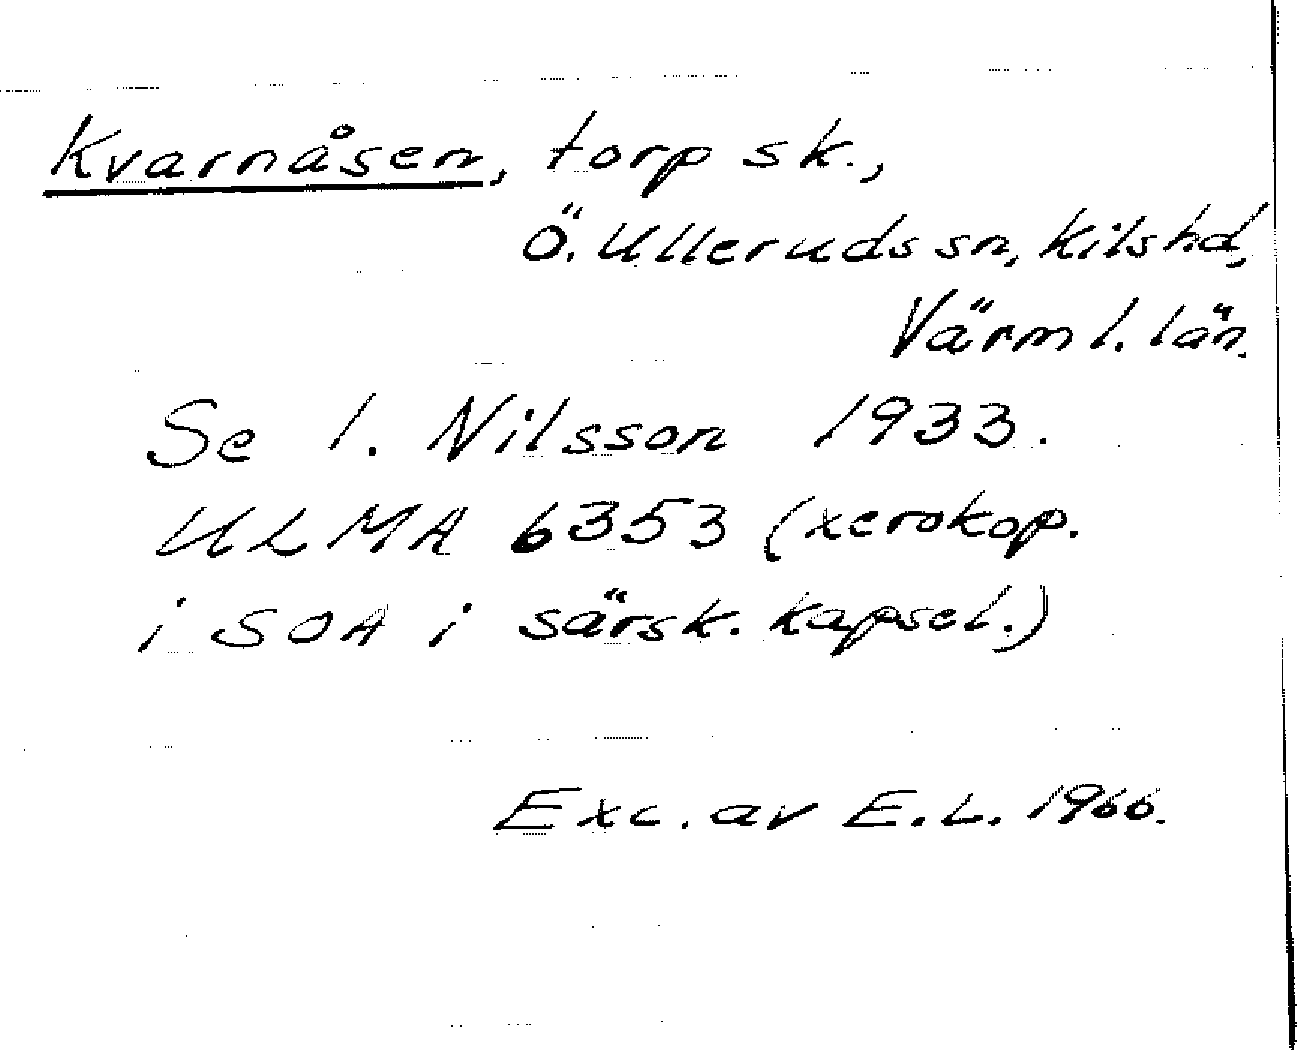 Kvarnåsen, torp sk.,
Ö. Ulleruds sn, Kils hd,
Värml. län.
Se I. Nilsson 1933.
ULMA 6353 (xerokop.
i SOA i särsk. kapsel.)
Exc. av E.L. 1966.